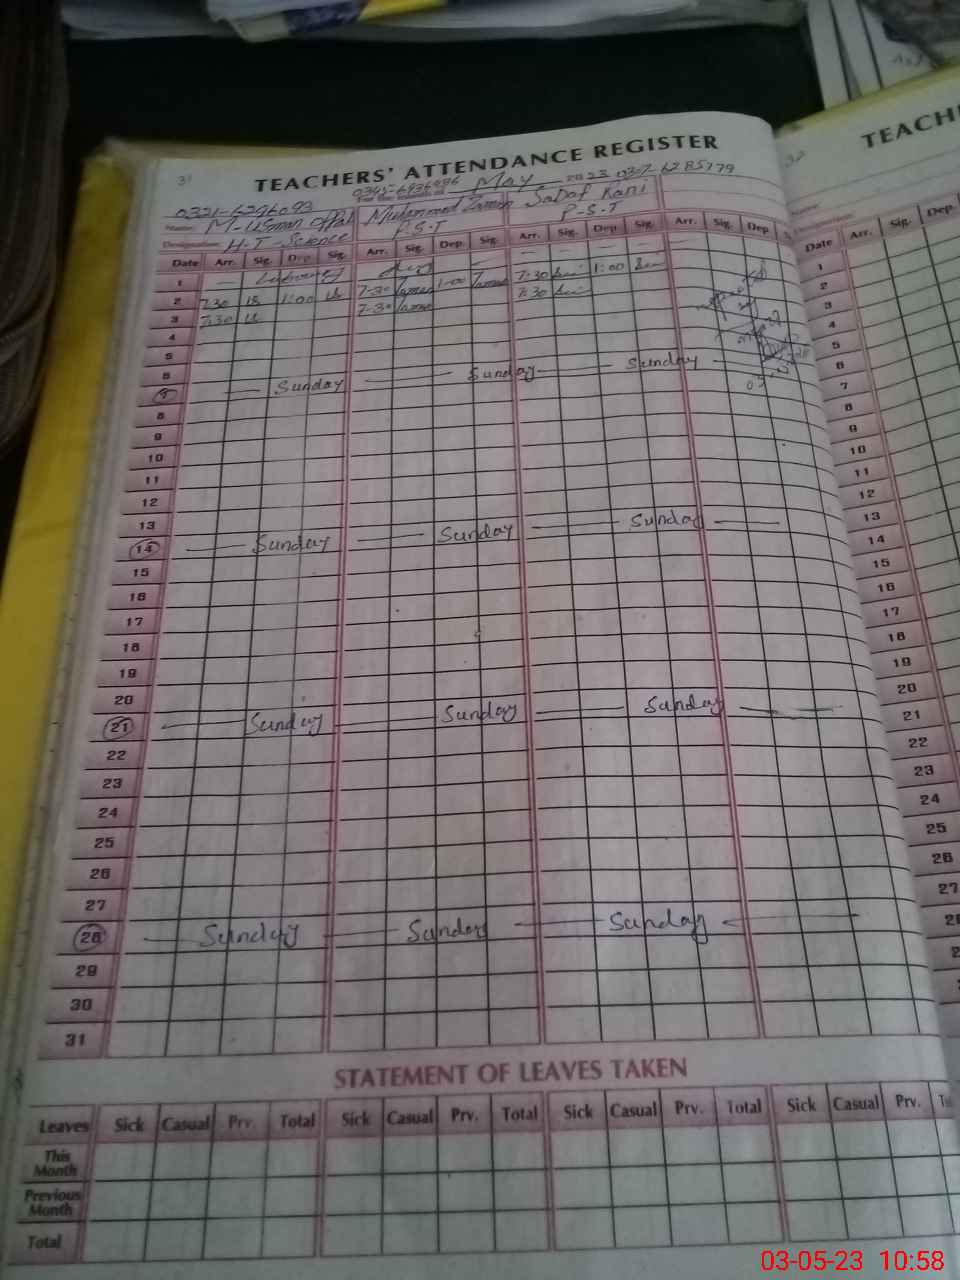 31
TEACHERS' ATTENDANCE REGISTER
0345-6936096 For the month of May 2023 0307-6285179
0321-6296093
Name: M-Usman Muhammad Zaman Sadaf Rani
Designation: H-T-Science P.S.T P-S-T
Date Arr. Sig. Dep. Sig. Arr. Sig. Dep. Sig. Arr. Sig. Dep. Sig. Arr. Sig. Dep.
1
2 7:30 1:00 7-30 Zaman 1-00 Zaman 7:30 1:00
3 7:30 7-30 Zaman 7:30
4
5
6
7 Sunday Sunday Sunday
8
9
10
11
12
13
14 Sunday Sunday Sunday
15
16
17
18
19
20
21 Sunday Sunday Sunday
22
23
24
25
26
27
28 Sunday Sunday Sunday
29
30
31
STATEMENT OF LEAVES TAKEN
Leaves Sick Casual Prv. Total Sick Casual Prv. Total Sick Casual Prv. Total Sick Casual Prv.
This Month
Previous Month
Total
32
TEACH
Date Arr. Sig. Dep.
1
2
3
4
5
6
7
8
9
10
11
12
13
14
15
16
17
18
19
20
21
22
23
24
25
26
27
03-05-23 10:58